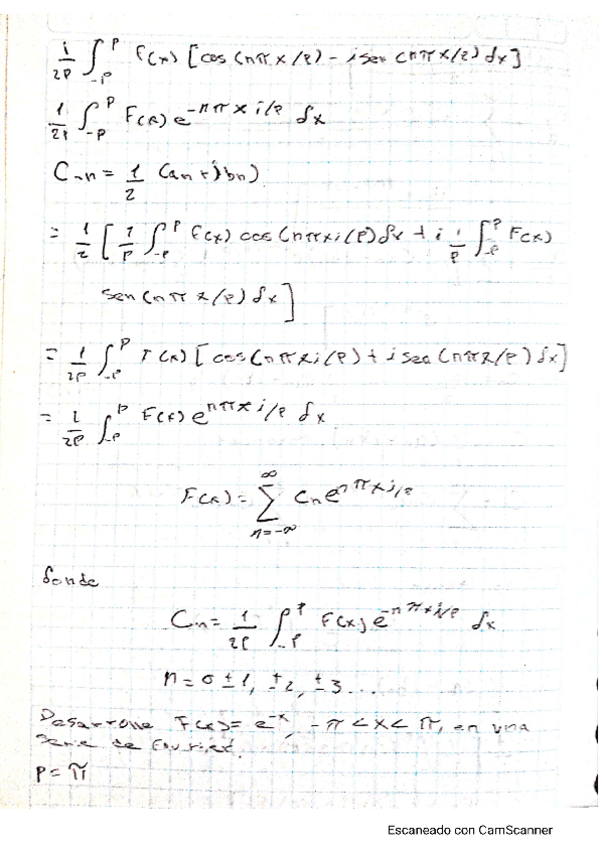 1/2P ∫_{-P}^{P} F(x) [cos(nπx/P) - i sen(nπx/P) dx]
1/2P ∫_{-P}^{P} F(x) e^{-nπxi/P} dx
C-n = 1/2 (an + ibn)
= 1/2 [1/P ∫_{-P}^{P} F(x) cos(nπxi/P) dx + i 1/P ∫_{-P}^{P} F(x)
sen(nπx/P) dx]
= 1/2P ∫_{-P}^{P} F(x) [cos(nπxi/P) + i sen(nπx/P) dx]
= 1/2P ∫_{-P}^{P} F(x) e^{nπxi/P} dx
F(x) = ∑_{n=-∞}^{∞} Cn e^{nπxi/P}
donde
Cn = 1/2P ∫_{-P}^{P} F(x) e^{-nπxi/P} dx
n = 0 ±1, ±2, ±3...
Desarrolle F(x) = e^{-x}, -π < x < π, en una
serie de Fourier.
P = π
Escaneado con CamScanner